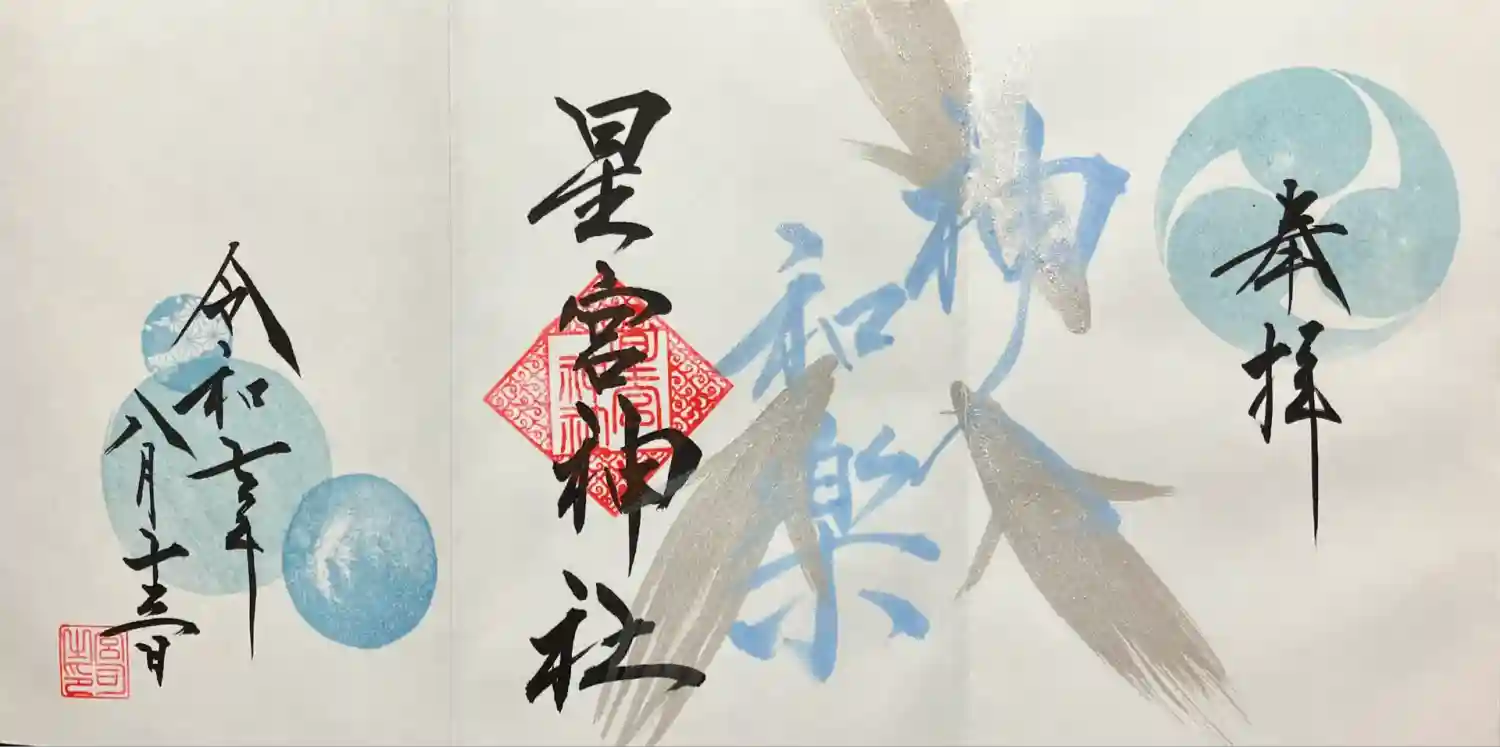 奉拝
神
和楽
星宮神社
星宮
神社
令和六年
八月十三日
宮司
之印